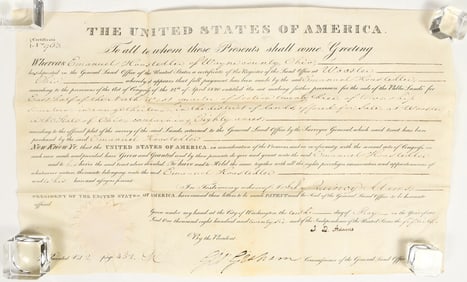 THE UNITED STATES OF AMERICA.
Certificate
To all to whom these Presents shall come Greeting
Whereas Emanuel of Wayne county Ohio
has deposited in the General Land Office of the United States a certificate of the Register of the Land Office at Wooster
Ohio whereby it appears that full payment has been made by the said Emanuel
according to the provisions of the Act of Congress of the 24th of April 1820 entitled An act making further provision for the sale of the Public Lands for
East half of the South quarter of Section of Township
in the District of lands offered for Sale at Wooster
State of Ohio containing Eighty acres
according to the official plat of the survey of the said Lands returned to the General Land Office by the Surveyor General which said tract has been
purchased by the said Emanuel
Now Know Ye that the UNITED STATES OF AMERICA in consideration of the Premises and in conformity with the several acts of Congress in
such case made and provided have Given and Granted and by these presents do give and grant unto the said Emanuel
and to his heirs the said tract above described To have and to Hold the same together with all the rights privileges immunities and appurtenances of
whatsoever nature thereunto belonging unto the said Emanuel
and to his heirs and assigns forever
In Testimony whereof I John Quincy Adams
PRESIDENT OF THE UNITED STATES OF AMERICA have caused these Letters to be made PATENT and the Seal of the General Land Office to be hereunto
affixed
Given under my hand at the City of Washington the day of in the Year of our
Lord one thousand eight hundred and twenty and of the Independence of the United States the
By the President
J. Q. Adams
Geo Graham Commissioner of the General Land Office
Recorded Vol 2 page